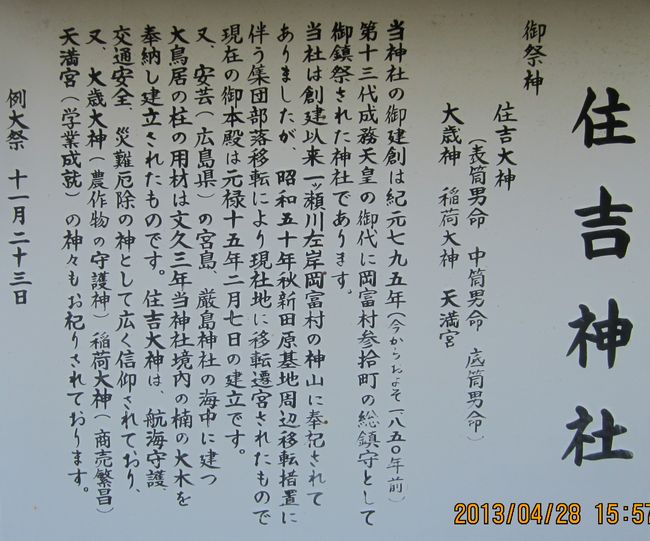 住吉神社
御祭神
住吉大神
(表筒男命 中筒男命 底筒男命)
大歳神 稲荷大神 天満宮
当神社の御建創は紀元七九五年(今からおよそ一八五〇年前)
第十三代成務天皇の御代に岡富村参拾町の総鎮守として
御鎮祭された神社であります。
当社は創建以来一ッ瀬川左岸岡富村の神山に奉祀されて
ありましたが 昭和五十年秋新田原基地周辺移転措置に
伴う集団部落移転により現社地に移転遷宮されたもので
現在の御本殿は元禄十五年二月七日の建立です。
又、安芸(広島県)の宮島、厳島神社の海中に建つ
大鳥居の柱の用材は文久三年当神社境内の楠の大木を
奉納し建立されたものです。住吉大神は、航海守護、
交通安全、災難厄除の神として広く信仰されており、
又、大歳大神(農作物の守護神)稲荷大神(商売繁昌)
天満宮(学業成就)の神々もお祀りされております。
例大祭 十一月二十三日
2013/04/28 15:57